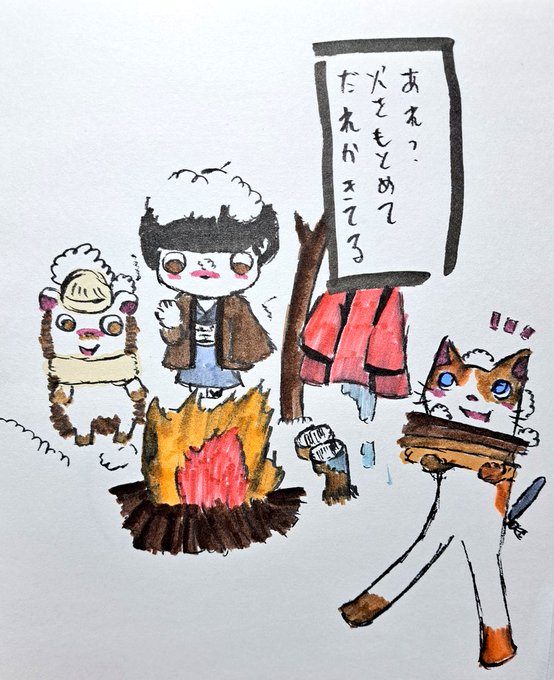 あれっ、
火をもとめて
だれかきてる